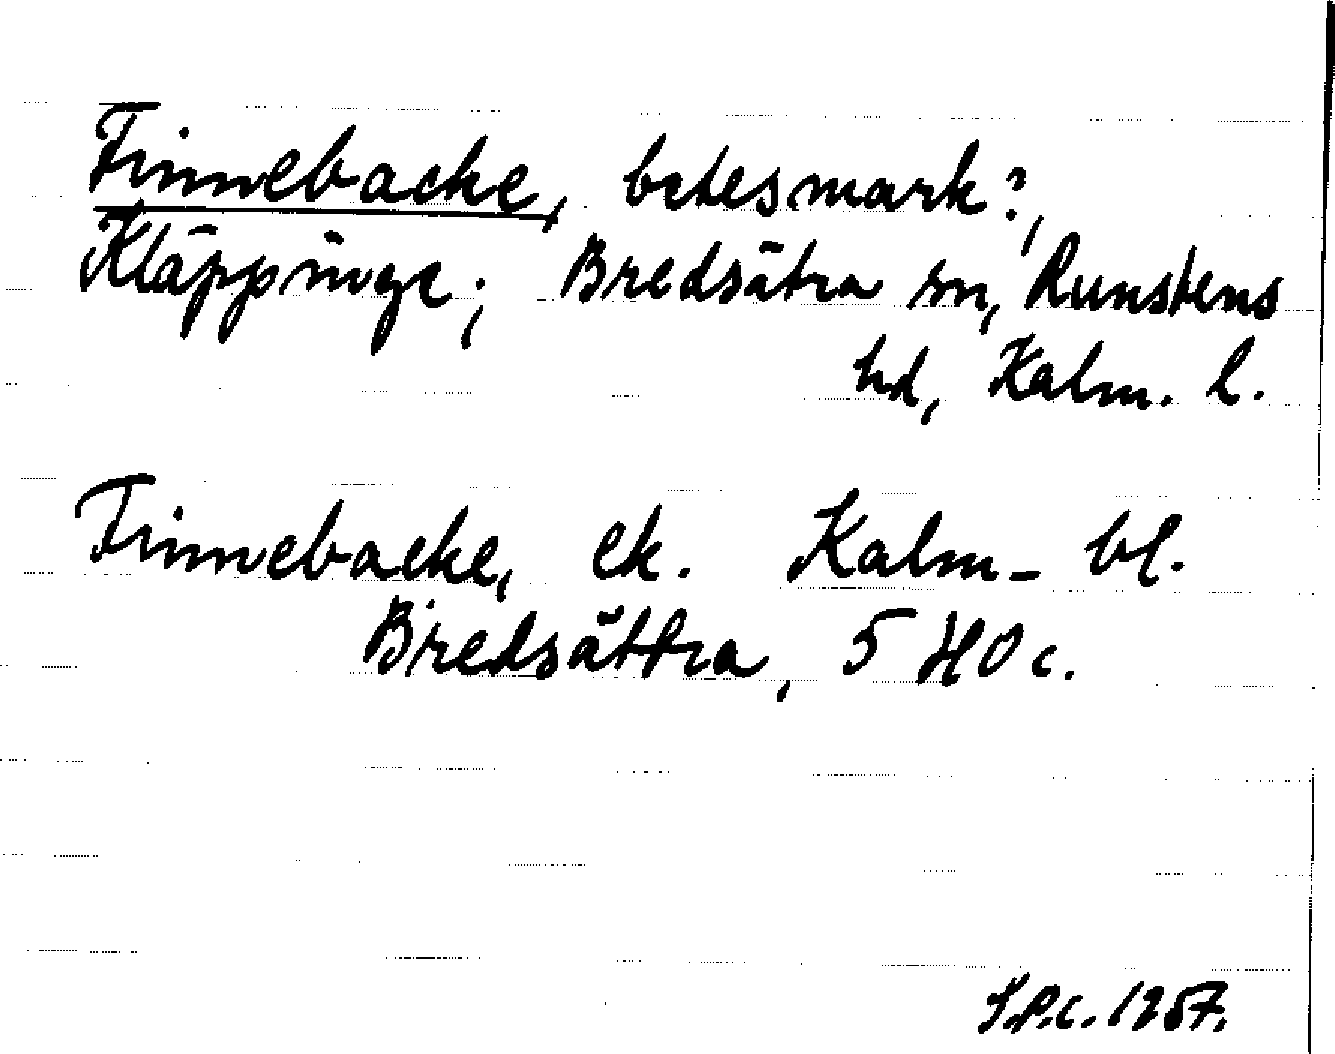 Finnebacke, betesmark?,
Kläppinge; Bredsätra sn, Runstens
hd, Kalm. l.
Finnebacke, ek. Kalm- bl.
Bredsättra, 5 H0c.
1957.